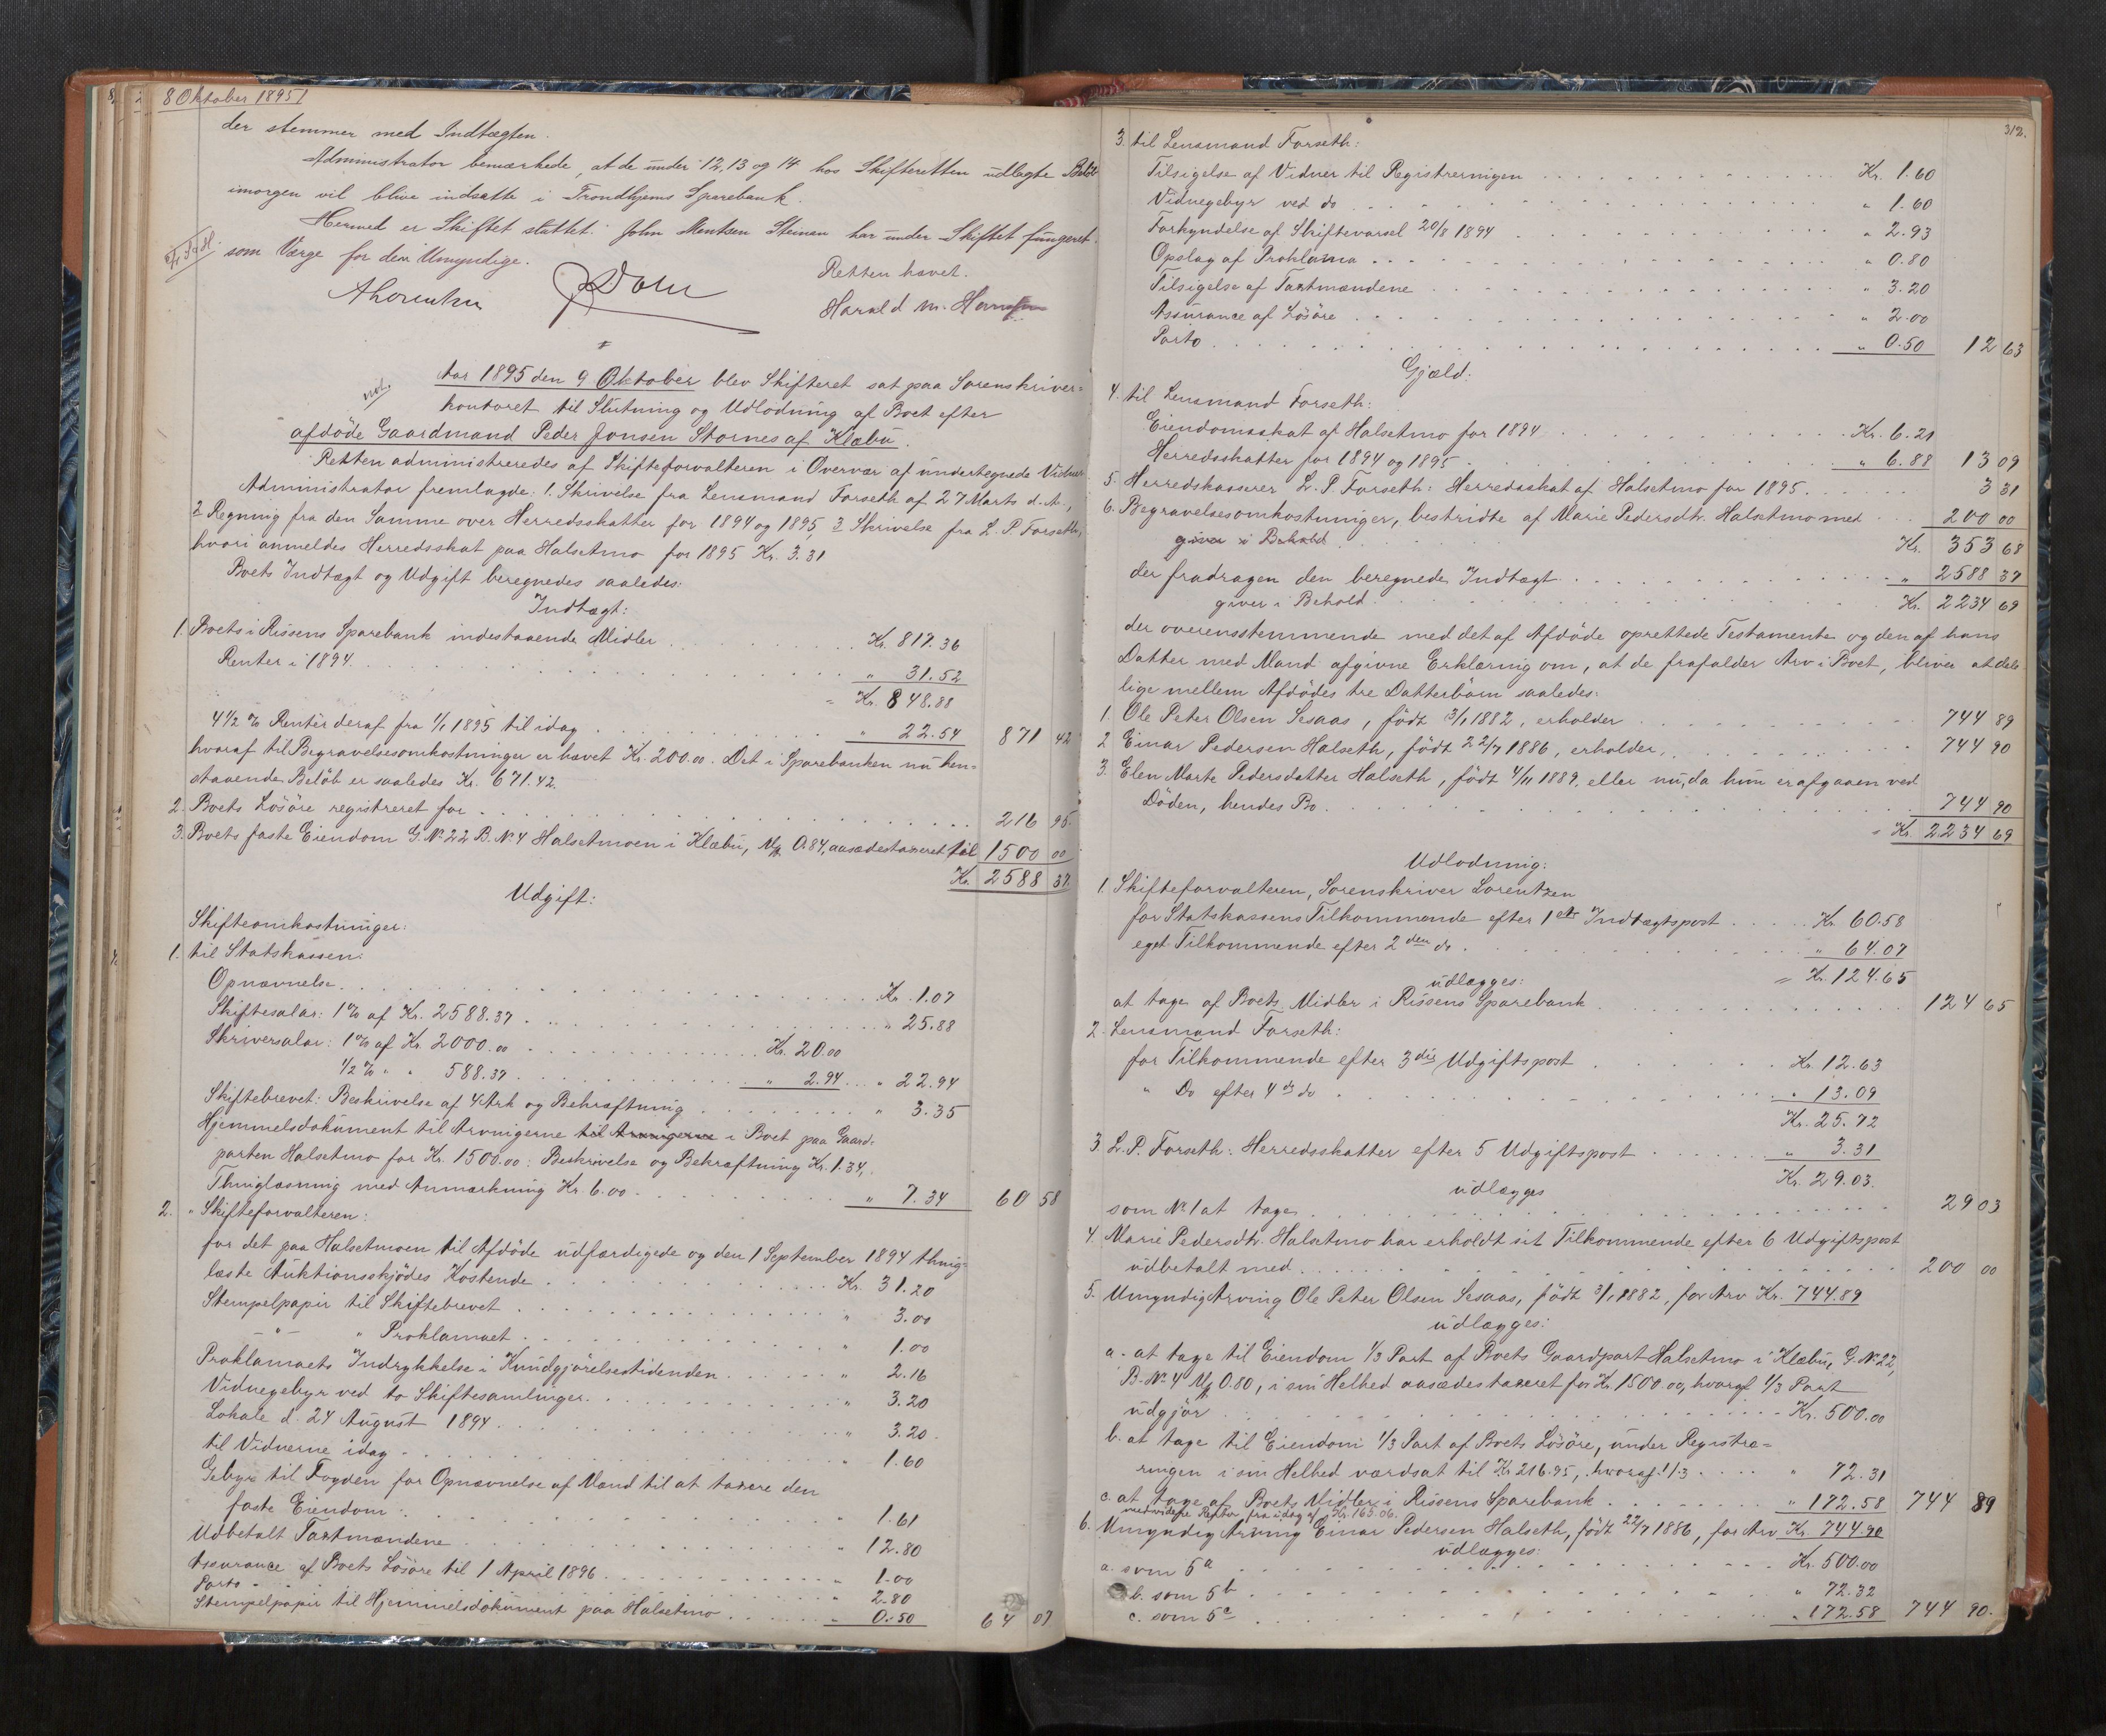 8 Oktober 1895
der stemmer med Indtægten.
Administrator bemærkede, at de under 12, 13 og 14 hos Skifteretten udlagte Beløb
imorgen vil blive indsatte i Trondhjems Sparebank.
Hermed er Skiftet sluttet. John Mentsen Steinan har under Skiftet fungeret
som Værge for den Umyndige.
Retten hævet.
ALorentzen
Harald M. Hansen
Aar 1895 den 9 Oktober blev Skifteret sat paa Sorenskriver=
kontoret til Slutning og Udlodning af Boet efter
afdöde Gaardmand Peder Jonsen Stornes af Klæbu.
Retten administreredes af Skifteforvalteren i Overvær af undertegnede Vidner
Administrator fremlagde: 1. Skrivelse fra Lensmand Forseth af 27 Marts d. A.,
2 Regning fra den Samme over Herredsskatter for 1894 og 1895, 3 Skrivelse fra L. P. Forseth,
hvori anmeldes Herredsskat paa Halsetmo for 1895 Kr. 3.31
Boets Indtægt og Udgift beregnedes saaledes:
Indtægt:
1. Boets i Rissens Sparebank indestaaende Midler Kr. 817.36
Renter i 1894 " 31.52
= Kr. 848.88
4 1/2 % Renter deraf fra 1/1 1895 til idag " 22.54 871 42
hvoraf til Begravelsesomkostninger er hævet Kr. 200.00. Det i Sparebanken nu hen=
staaende Belöb er saaledes Kr. 671.42.
2. Boets Lösöre registreret for 216 95
3. Boets faste Eiendom G.No 22 B.No 4 Halsetmoen i Klæbu, Mk 0.84, aasædestaxeret til 1500 00
Kr. 2588 37
Udgift:
Skifteomkostninger:
1. til Statskassen:
Opnævnelse Kr. 1.07
Skiftesalær: 1 % af Kr. 2588.37 " 25.88
Skriversalær: 1 % af Kr. 2000.00 Kr. 20.00
1/2 % " " 588.37 " 2.94 " 22.94
Skiftebrevet: Beskrivelse af 4 Ark og Bekræftning " 3.35
Hjemmelsdokument til Arvingerne til Arvingerne i Boet paa Gaard=
parten Halsetmo for Kr. 1500.00: Beskrivelse og Bekræftning Kr. 1.34,
Thinglæsning med Anmærkning Kr. 6.00 " 7.34 60 58
2. " Skifteforvalteren:
for det paa Halsetmoen til Afdöde udfærdigede og den 1 September 1894 thing=
læste Auktionsskjödes Kostende Kr. 31.20
Stempelpapir til Skiftebrevet " 3.00
—"— " Proklamaet " 1.00
Proklamaets Indrykkelse i Kundgjörelsestidenden " 2.16
Vidnegebyr ved to Skiftesamlinger " 3.20
Lokale d. 24 August 1894 " 3.20
til Vidnerne idag " 1.60
Gebyr til Fogden for Opnævnelse af Mænd til at taxere den
faste Eiendom " 1.61
Udbetalt Taxtmændene " 12.80
Assurance af Boets Lösöre til 1 April 1896 " 1.00
Porto " 2.80
Stempelpapir til Hjemmelsdokument paa Halsetmo " 0.50 64 07
312.
3. til Lensmand Forseth:
Tilsigelse af Vidner til Registreringen Kr. 1.60
Vidnegebyr ved do " 1.60
Forkyndelse af Skiftevarsel 20/8 1894 " 2.93
Opslag af Proklama " 0.80
Tilsigelse af Taxtmændene " 3.20
Assurance af Lösöre " 2.00
Porto " 0.50 12 63
Gjæld:
4. til Lensmand Forseth:
Eiendomsskat af Halsetmo for 1894 Kr. 6.21
Herredsskatter for 1894 og 1895 " 6.88 13 09
5. Herredskasserer L. P. Forseth: Herredsskat af Halsetmo for 1895 3 31
6. Begravelsesomkostninger, bestridte af Marie Pedersdtr. Halsetmo med 200 00
giver i Behold Kr. 353 68
der fradragen den beregnede Indtægt " 2588 37
giver i Behold Kr. 2234 69
der overensstemmende med det af Afdöde oprettede Testamente og den af hans
Datter med Mand afgivne Erklæring om, at de frafalder Arv i Boet, bliver at dele
lige mellem Afdödes tre Datterbörn saaledes:
1. Ole Peter Olsen Sesaas, födt 3/1 1882, erholder 744 89
2 Einar Pedersen Halseth, födt 22/7 1886, erholder 744 90
3. Elen Marte Pedersdatter Halseth, födt 4/11 1889, eller nu, da hun er afgaaen ved
Döden, hendes Bo 744 90
= Kr. 2234 69
Udlodning:
1. Skifteforvalteren, Sorenskriver Lorentzen
for Statskassens Tilkommende efter 1ste Indtægtspost Kr. 60.58
eget Tilkommende efter 2den do " 64.07
= Kr. 124.65
udlægges:
at tage af Boets Midler i Rissens Sparebank 124 65
2. Lensmand Forseth:
for Tilkommende efter 3die Udgiftspost Kr. 12.63
" Do efter 4de do " 13.09
Kr. 25.72
3 L. P. Forseth: Herredsskatter efter 5 Udgiftspost " 3.31
Kr. 29.03.
udlægges
som No 1 at tage 29 03
4. Marie Pedersdtr. Halsetmo har erholdt sit Tilkommende efter 6 Udgiftspost
udbetalt med 200 00
5. Umyndig Arving Ole Peter Olsen Sesaas, födt 3/1 1882, for Arv Kr. 744.89
udlægges:
a. at tage til Eiendom 1/3 Part af Boets Gaardpart Halsetmo i Klæbu, G.No 22,
B.No 4 Mk 0.80, i sin Helhed aasædestaxeret for Kr. 1500.00, hvoraf 1/3 Part
udgjör Kr. 500.00
b. at tage til Eiendom 1/3 Part af Boets Lösöre, under Registre=
ringen i sin Helhed værdsat til Kr. 216.95, hvoraf 1/3 " 72.31
c. at tage af Boets Midler i Rissens Sparebank " 172.58 744 89
med videre Renter fra idag af Kr. 165.06.
6. Umyndig Arving Einar Pedersen Halseth, födt 22/7 1886, for Arv Kr. 744.90
udlægges:
a. som 5a Kr. 500.00
b. som 5b " 72.32
c. som 5c " 172.58 744 90.